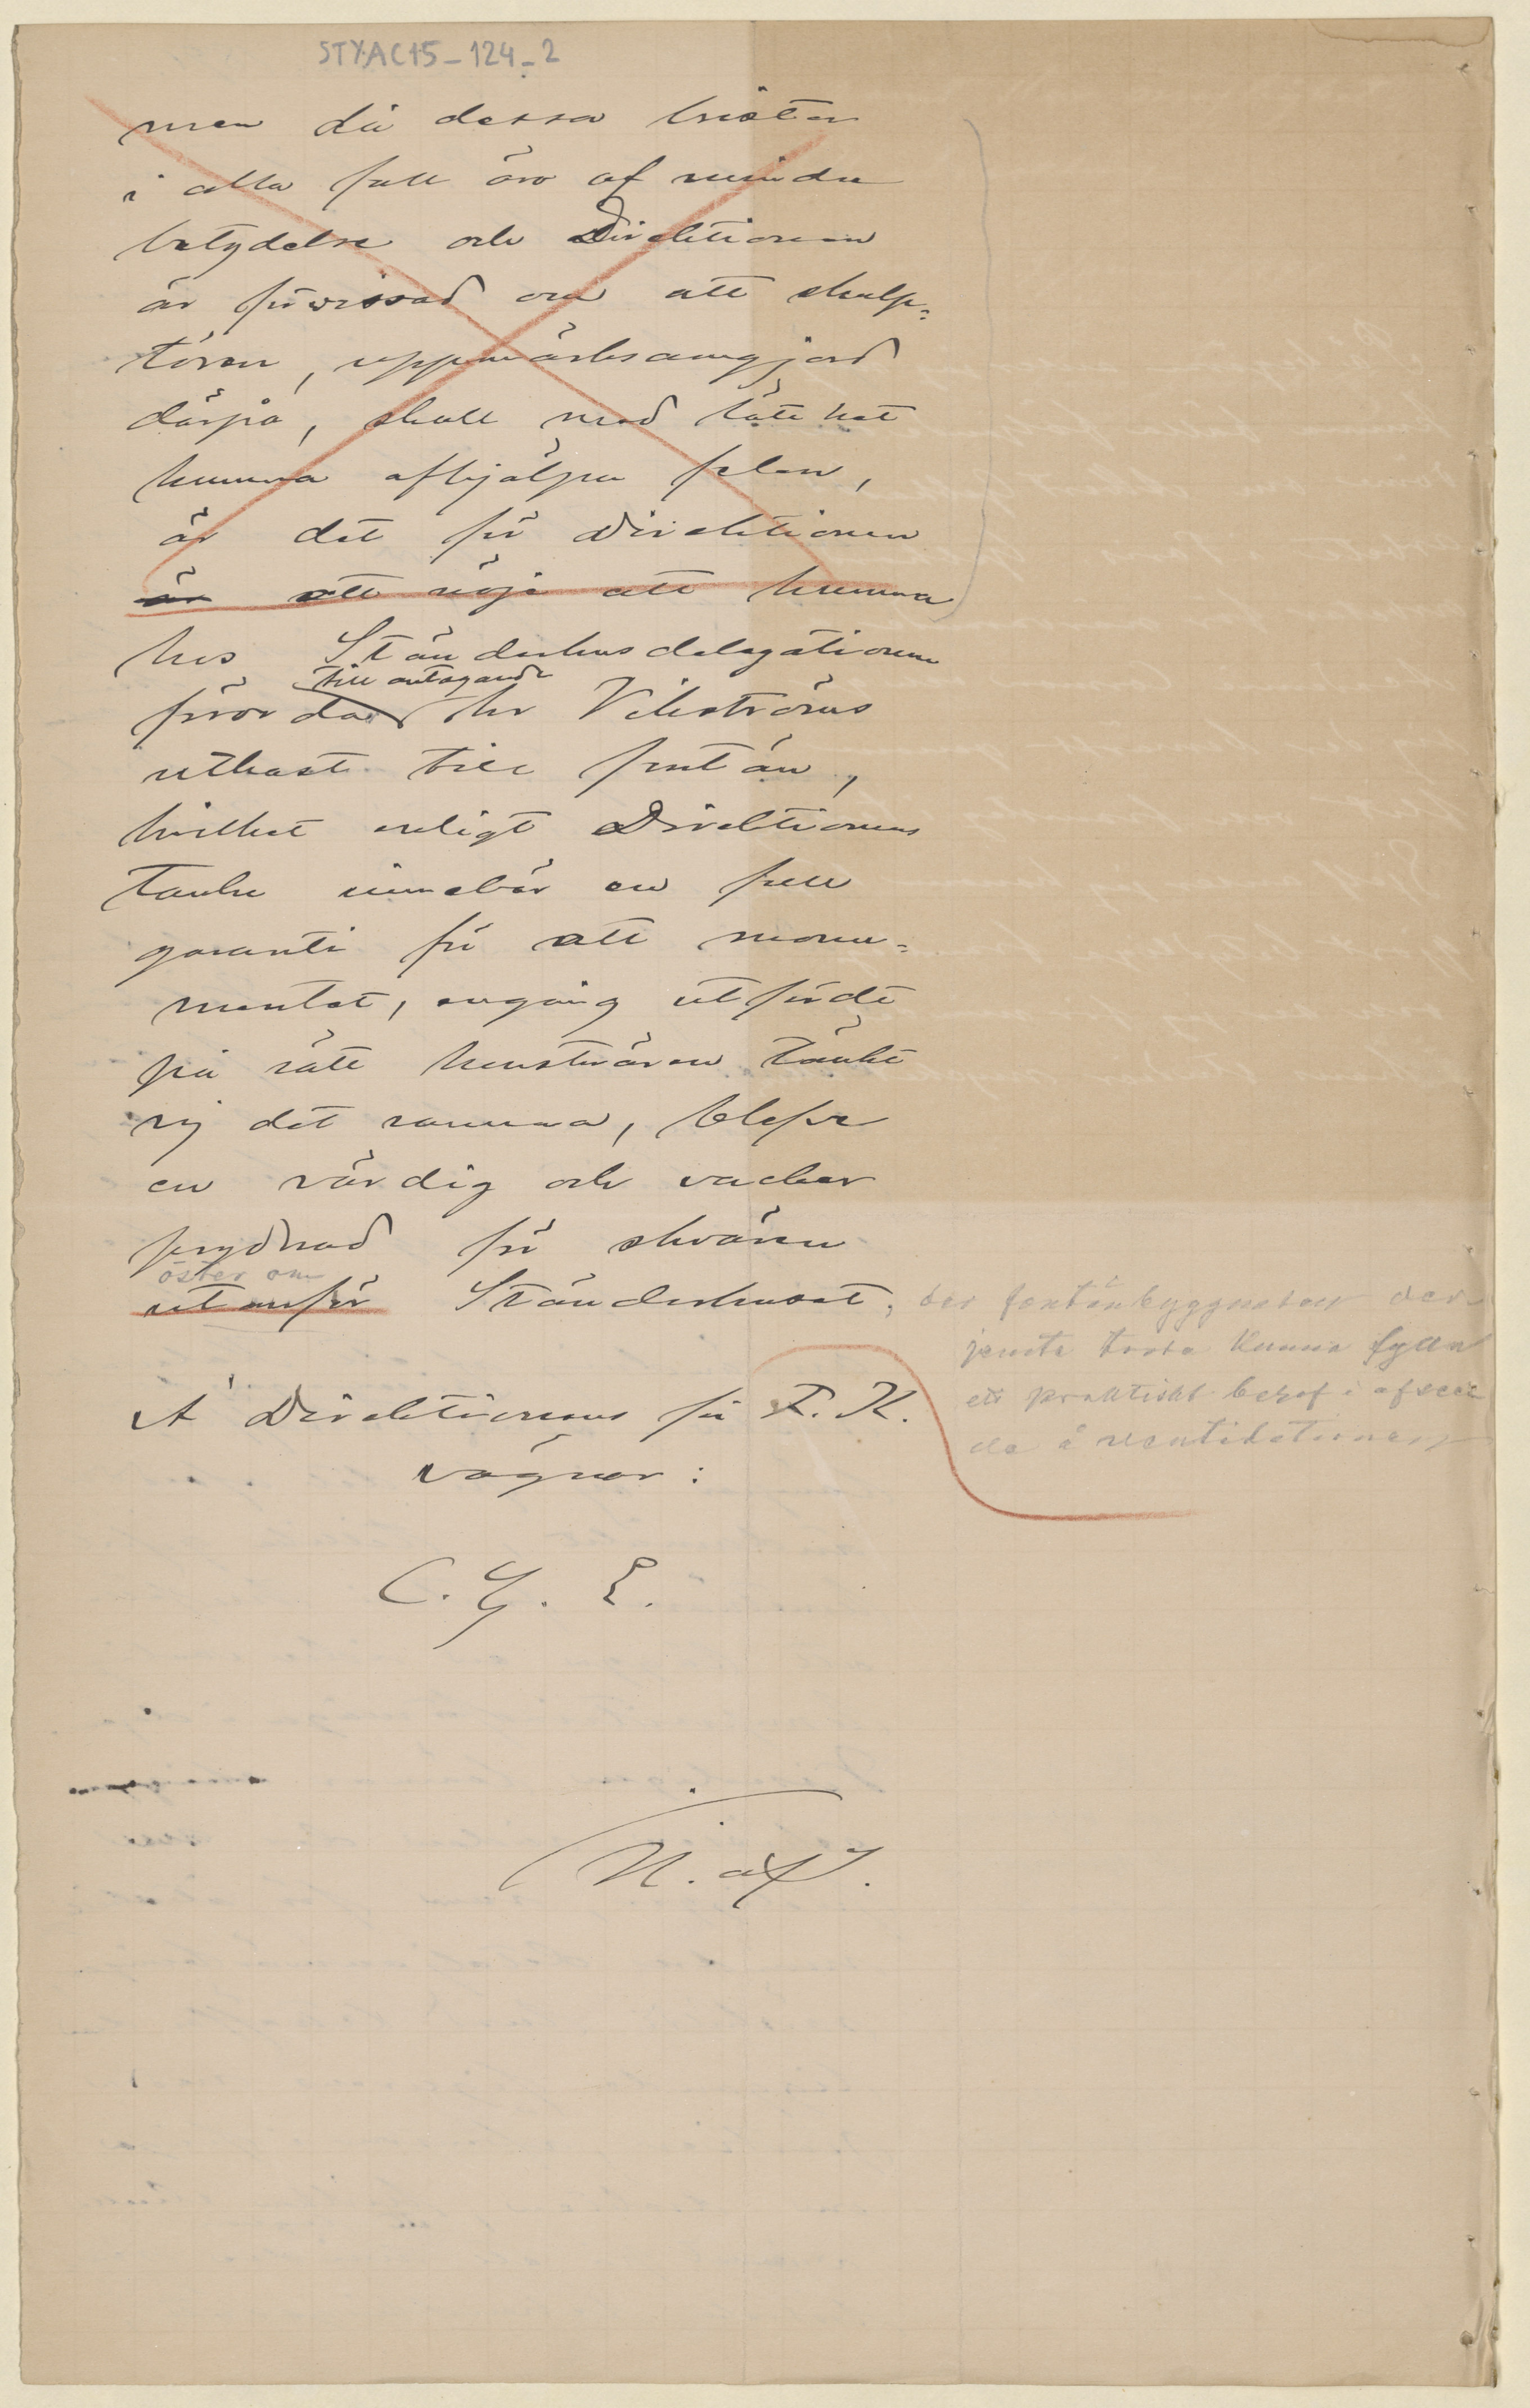 STYAC15-124-2
men då dessa brister
i alla fall äro af mindre
betydelse och Direktionen
är förvissad om att skulp=
tören, uppmärksamgjord
därpå, skall med lätthet
kunna afhjälpa felen,
är det för Direktionen
är ett nöje att kunna
hos Ständerhusdelegationen
till antagande
förorda hr Vikströms
utkast till fontän,
hvilket enligt Direktionens
tanke innebär en full
garanti för att monu=
mentet, engång utfördt
på sätt konstnären tänkt
sig det samma, blefve
en värdig och vacker
prydnad för skvären
öster om
utanför Ständerhuset, der fontänbyggnaden der-
jemte torde kunna fylla
ett praktiskt behof i afseen
de å ventilationen
Å Direktionens för F. K.
vägnar:
C. G. E.
N. af.